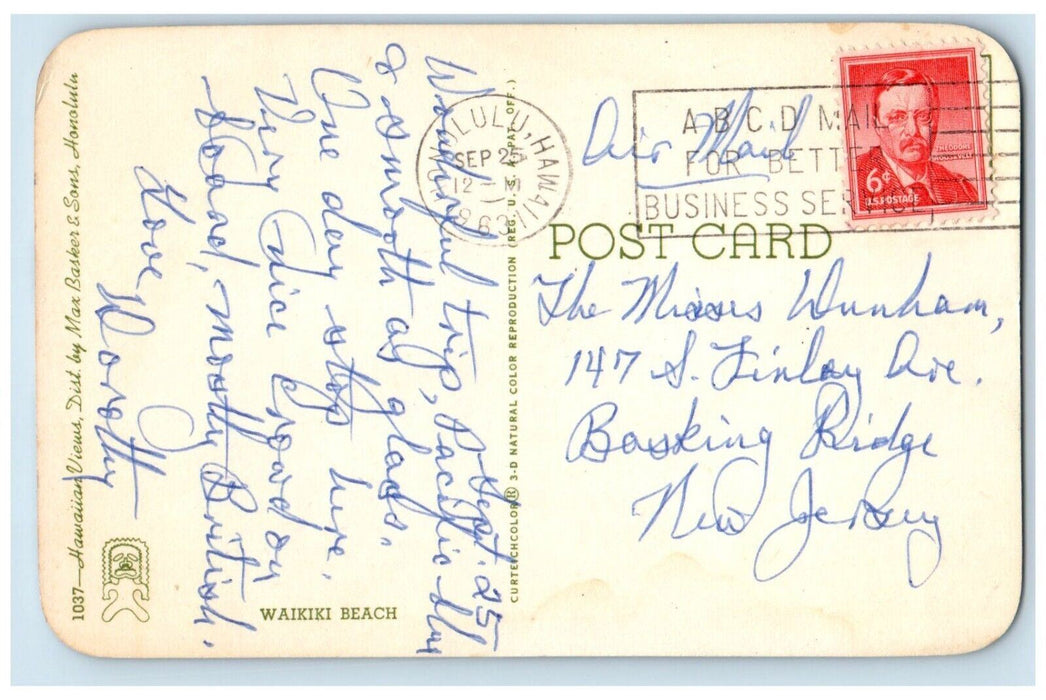 1037—Hawaiian Views, Dist. by Max Basker & Sons, Honolulu
WAIKIKI BEACH
Sept. 25
Wonderful trip, Pacific
& smooth as glass.
One day stop here.
Very nice crowd on
board, mostly British.
Love, Dorothy
CURTEICHCOLOR® 3-D NATURAL COLOR REPRODUCTION (REG. U.S.A. PAT. OFF.)
HONOLULU, HAWAII
SEP 25
12 - M
1963
A B C D MAIL
FOR BETTER
BUSINESS SERVICE
THEODORE
ROOSEVELT
6¢
U.S. POSTAGE
Air Mail
POST CARD
The Misses Dunham,
147 S. Finlay Ave.
Basking Ridge
New Jersey